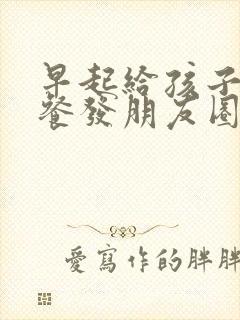 早起給孩子
餐發朋友圈
愛寫作的胖胖